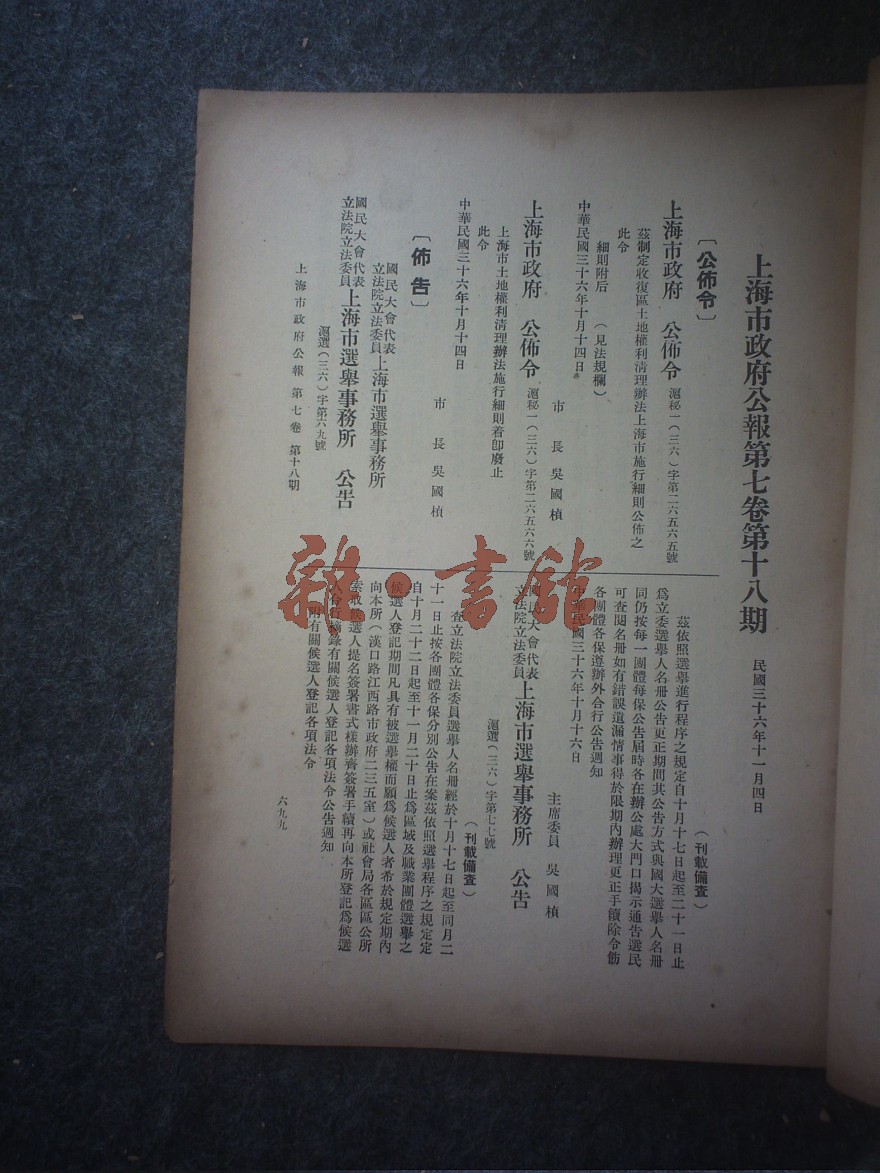 上海市政府公報第七卷第十八期 民國三十六年十一月四日
〔公佈令〕
上海市政府 公佈令 滬秘一(三六)字第二六五六五號
茲制定收復區土地權利清理辦法上海市施行細則公佈之
此令
細則附后 (見法規欄)
中華民國三十六年十月十四日
市長 吳國楨
上海市政府 公佈令 滬秘一(三六)字第二六五六六號
上海市土地權利清理辦法施行細則着即廢止
此令
中華民國三十六年十月十四日
市長 吳國楨
〔佈告〕
國民大會代表
立法院立法委員 上海市選舉事務所
國民大會代表
立法院立法委員 上海市選舉事務所 公告
滬選(三六)字第六九號
(刊載備查)
茲依照選舉進行程序之規定自十月十七日起至二十一日止
為立委選舉人名冊公告更正期間其公告方式與國大選舉人名冊
同仍按每一團體每保公告屆時各在辦公處大門口揭示通告選民
可查閱名冊如有錯誤遺漏情事得於限期內辦理更正手續除令飭
各團體各保遵辦外合行公告週知
中華民國三十六年十月十六日
主席委員 吳國楨
國民大會代表
立法院立法委員 上海市選舉事務所 公告
滬選(三六)字第七七號
(刊載備查)
查立法院立法委員選舉人名冊經於十月十七日起至同月二
十一日止按各團體各保分別公告在案茲依照選舉程序之規定定
自十月二十二日起至十一月二十日止為區域及職業團體選舉之
候選人登記期間凡具有被選舉權而願為候選人者希於規定期內
向本所(漢口路江西路市政府二三五室)或社會局各區區公所
索取候選人提名簽署書式樣辦齊簽署手續再向本所登記為候選
人合行摘錄有關候選人登記各項法令公告週知
附有關候選人登記各項法令
上海市政府公報 第七卷 第十八期
六九九
雜·書館